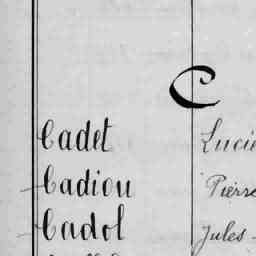 C
Cadet Lucie
Cadiou Pierre
Cadol Jules